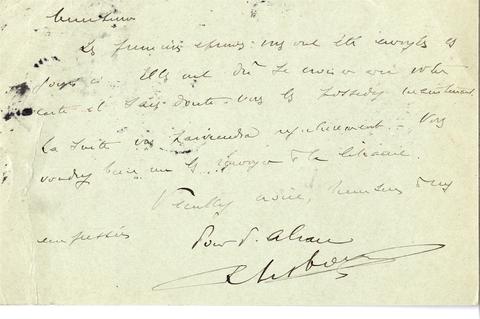 Monsieur
Les premières épreuves vous ont été envoyées
Elles ont dû se croiser avec votre
carte et sans doute vous les possédez maintenant
La suite vous parviendra régulièrement. Vous
voudrez bien me les renvoyer à la librairie.
Veuillez croire, Monsieur
empressés
Pour F. Alcan